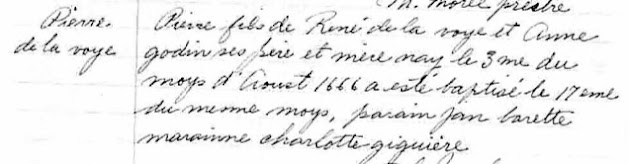 M. Morel prestre
Pierre
de la voye
Pierre fils de René de la voye et Anne
godin ses père et mère nay le 3 me du
moys d'Aoust 1666 a esté baptisé le 17 eme
du mesme moys, parain jan barette
marainne charlotte giguière